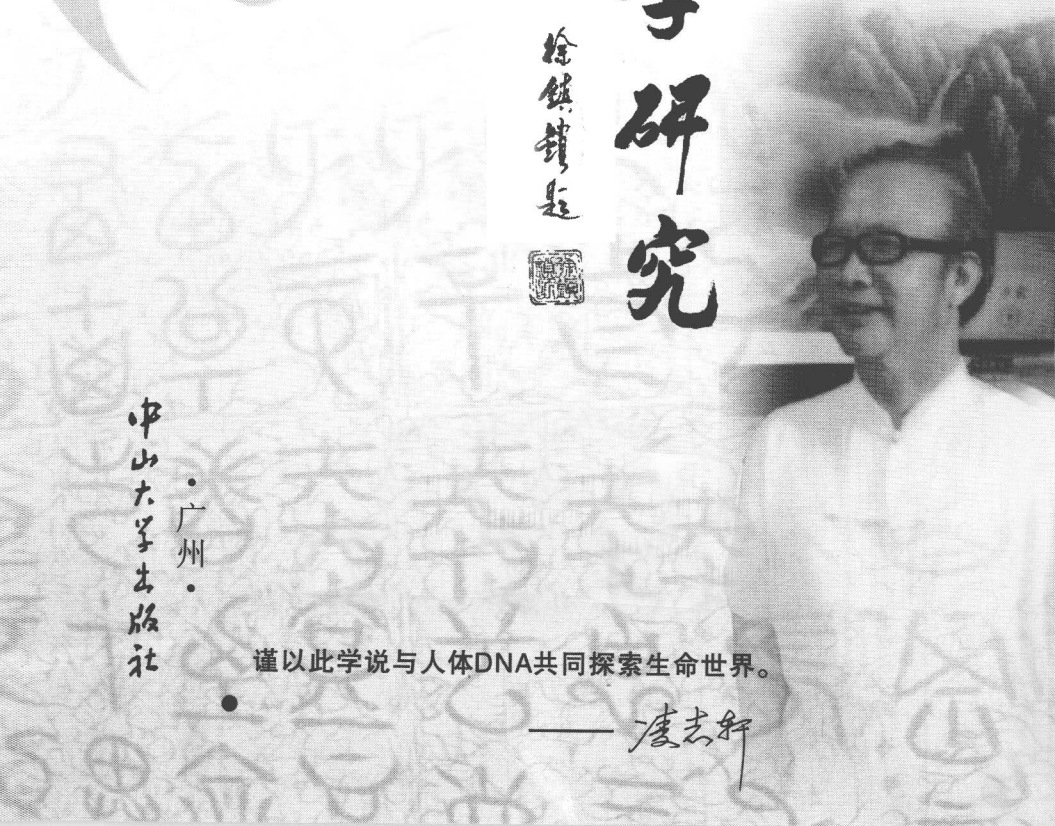 学研究
徐镇锁题
中山大学出版社
·广州·
谨以此学说与人体DNA共同探索生命世界。
——凌志轩